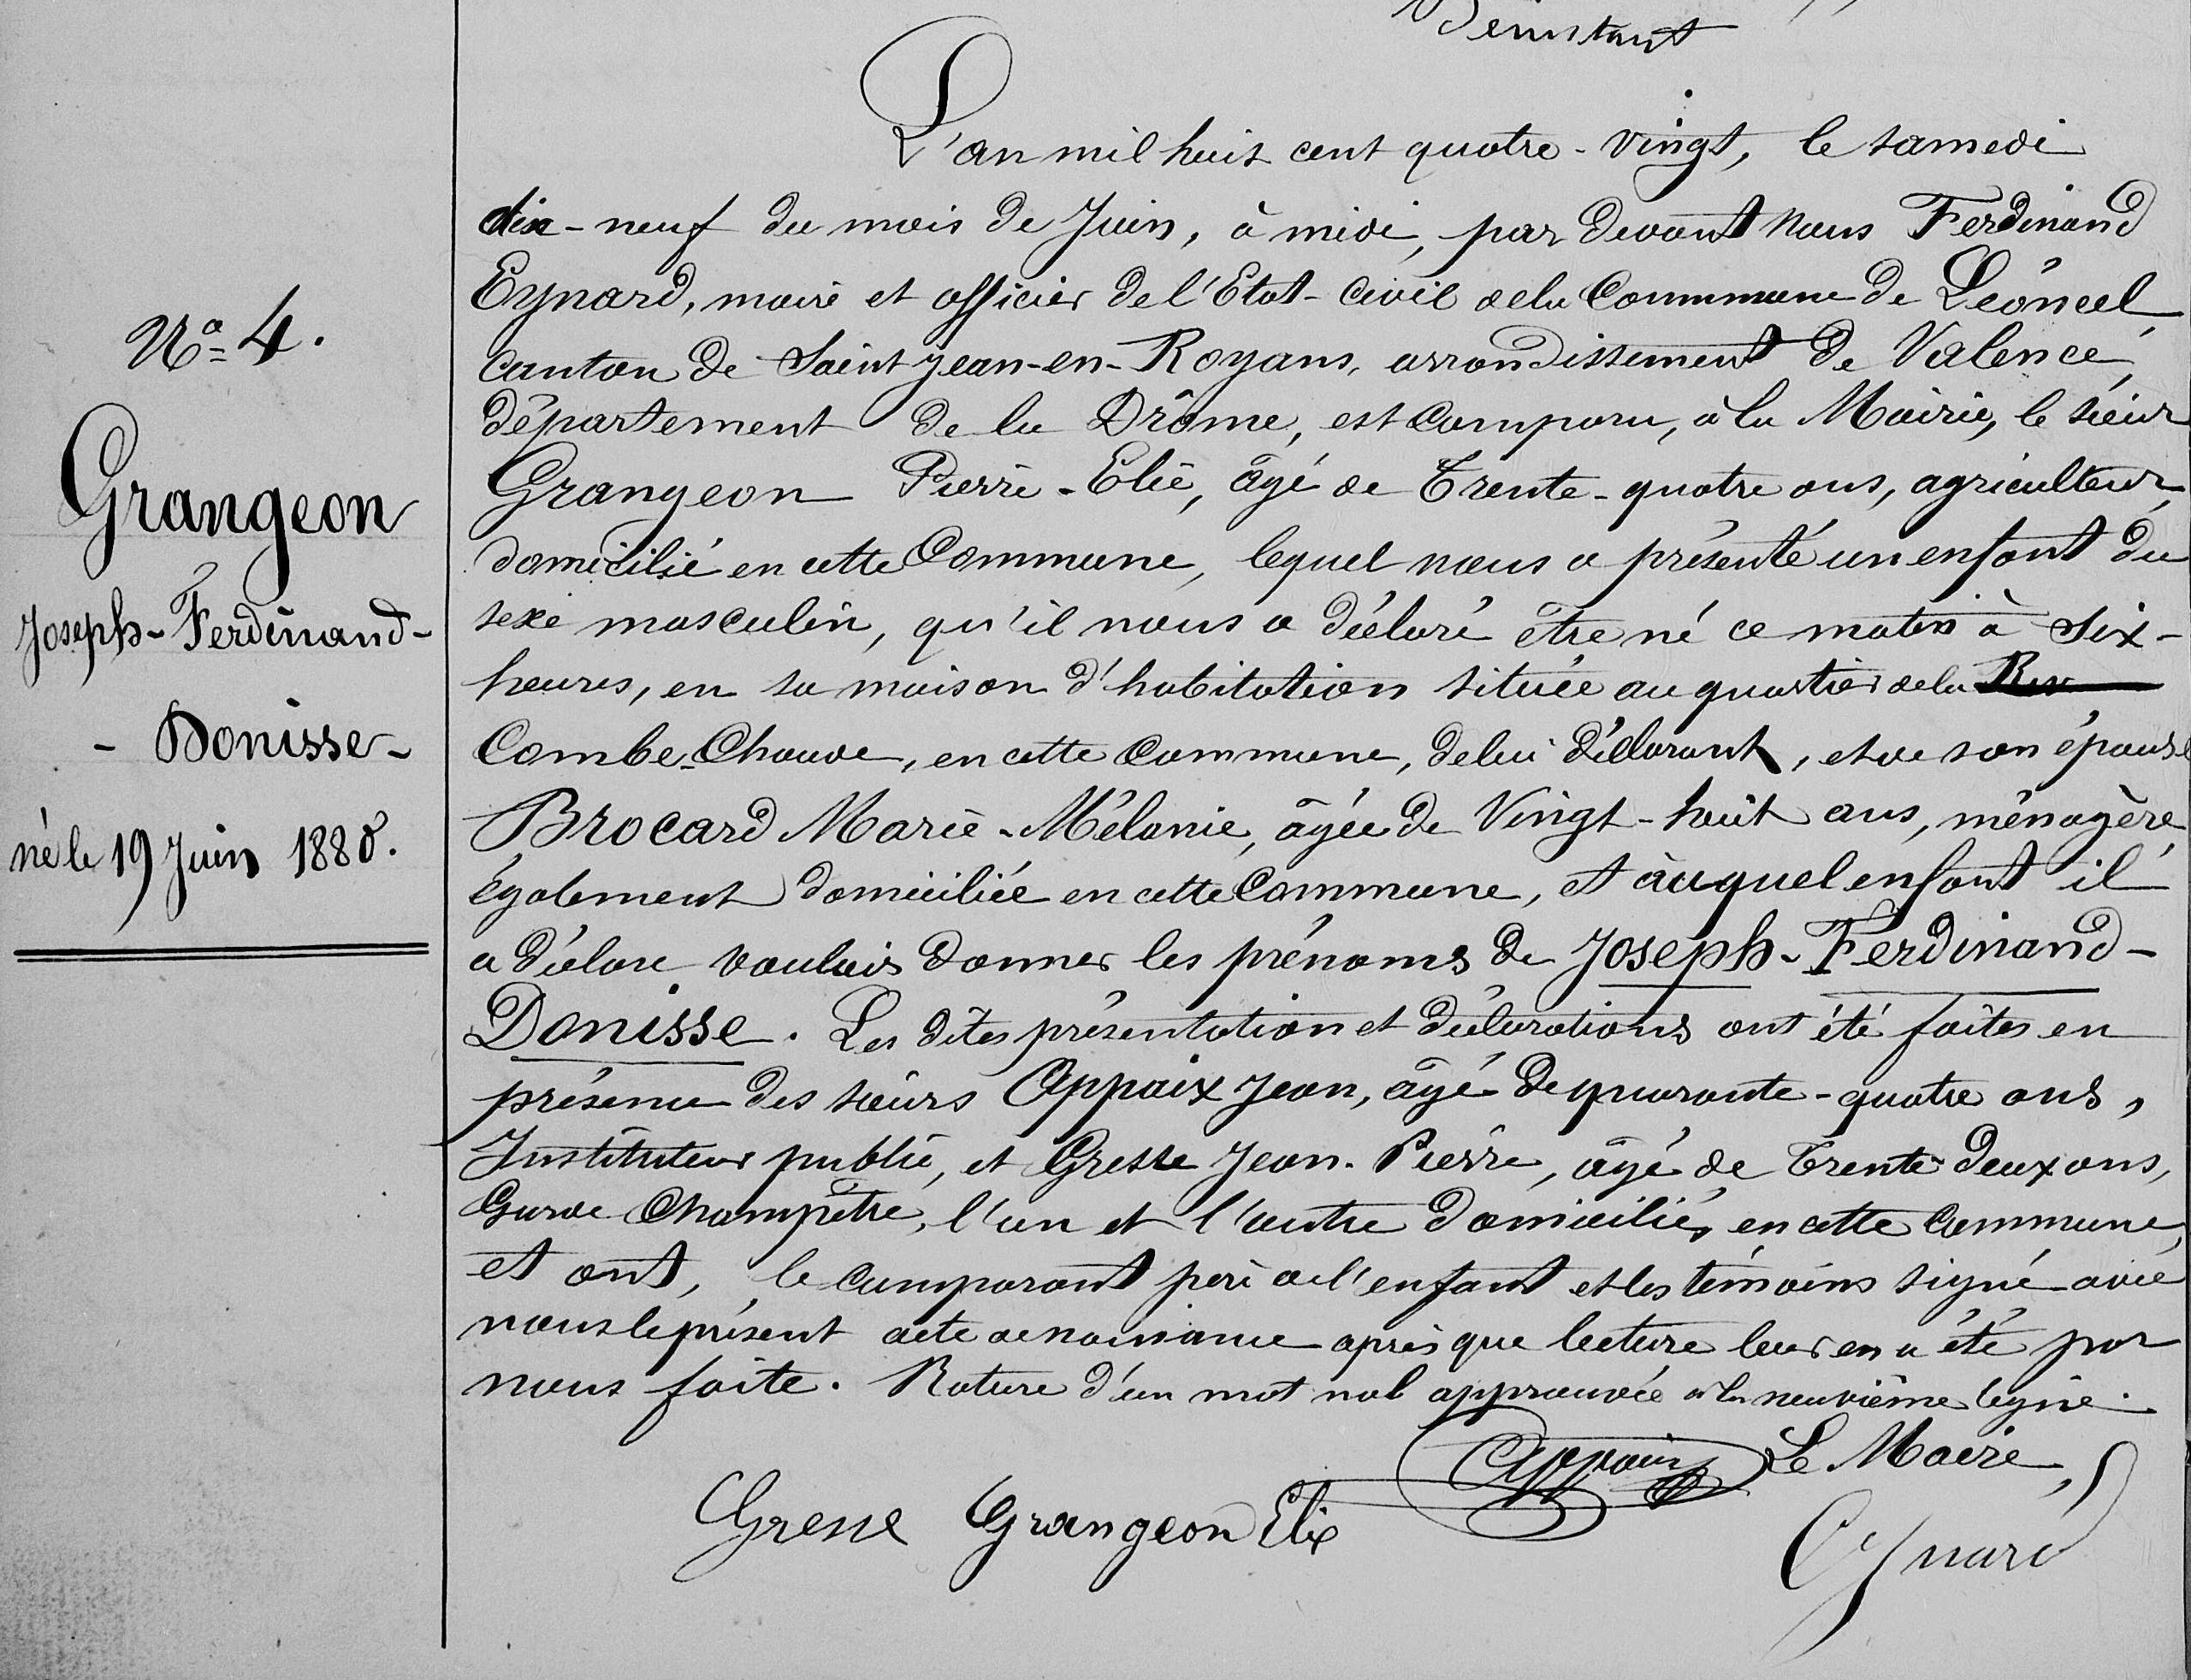 L'an mil huit cent quatre-vingt, le samedi
dix-neuf du mois de Juin, à midi, par devant nous Ferdinand
Eynard, maire et officier de l'Etat-civil de la Commune de Léoncel,
canton de Saint Jean-en-Royans, arrondissement de Valence,
département de la Drôme, est comparu, à la Mairie, le sieur
Nº 4.
Grangeon
Joseph-Ferdinand-
- Donisse-
né le 19 Juin 1880.
Grangeon Pierre-Elie, âgé de Trente-quatre ans, agriculteur,
domicilié en cette Commune, lequel nous a présenté un enfant du
sexe masculin, qu'il nous a déclaré être né ce matin à six-
heures, en sa maison d'habitation située au quartier de la
Combe-Chauve, en cette Commune, de lui déclarant, et de son épouse
Brocard Marie-Mélanie, âgée de Vingt-huit ans, ménagère,
également domiciliée en cette Commune, et auquel enfant il
a déclaré vouloir donner les prénoms de Joseph-Ferdinand-
Donisse. Les dites présentation et déclarations ont été faites en
présence des sieurs Appaix Jean, âgé de quarante-quatre ans,
Instituteur public, et Gresse Jean-Pierre, âgé de Trente-deux ans,
Garde Champêtre, l'un et l'autre domiciliés en cette Commune,
et ont, le comparant père de l'enfant et les témoins signé avec
nous le présent acte de naissance après que lecture leur en a été par
nous faite. Rature d'un mot nul approuvée à la neuvième ligne.
Appaix Le Maire,
Gresse Grangeon Elie
Eynard